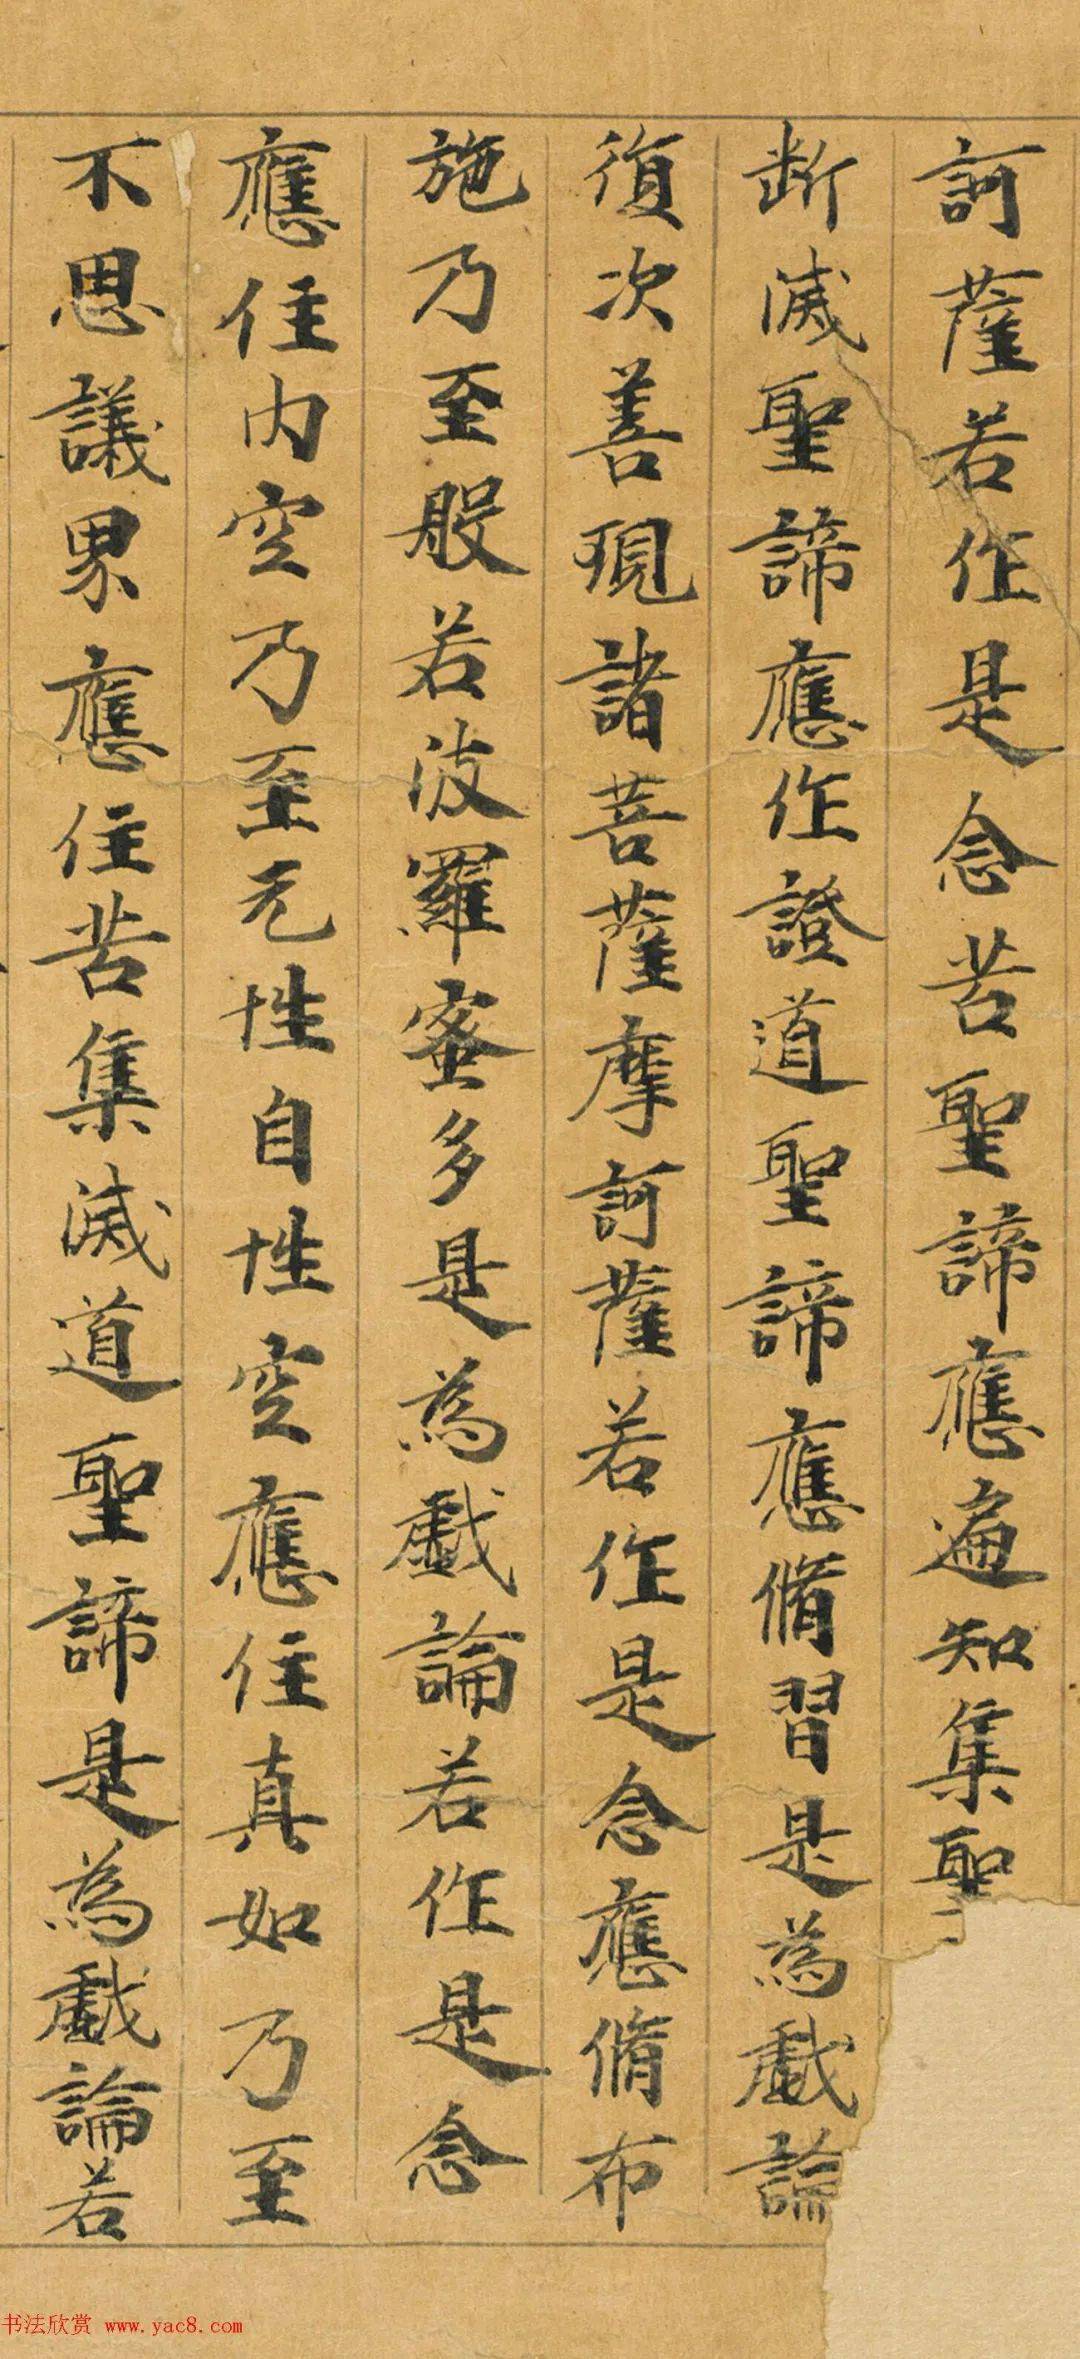 訶薩若作是念苦聖諦應遍知集聖
断滅聖諦應作證道聖諦應脩習是為戲論
復次善現諸菩薩摩訶薩若作是念應脩布
施乃至般若波羅蜜多是為戲論若作是念
應住內空乃至无性自性空應住真如乃至
不思議界應住苦集滅道聖諦是為戲論若
书法欣赏 www.yac8.com